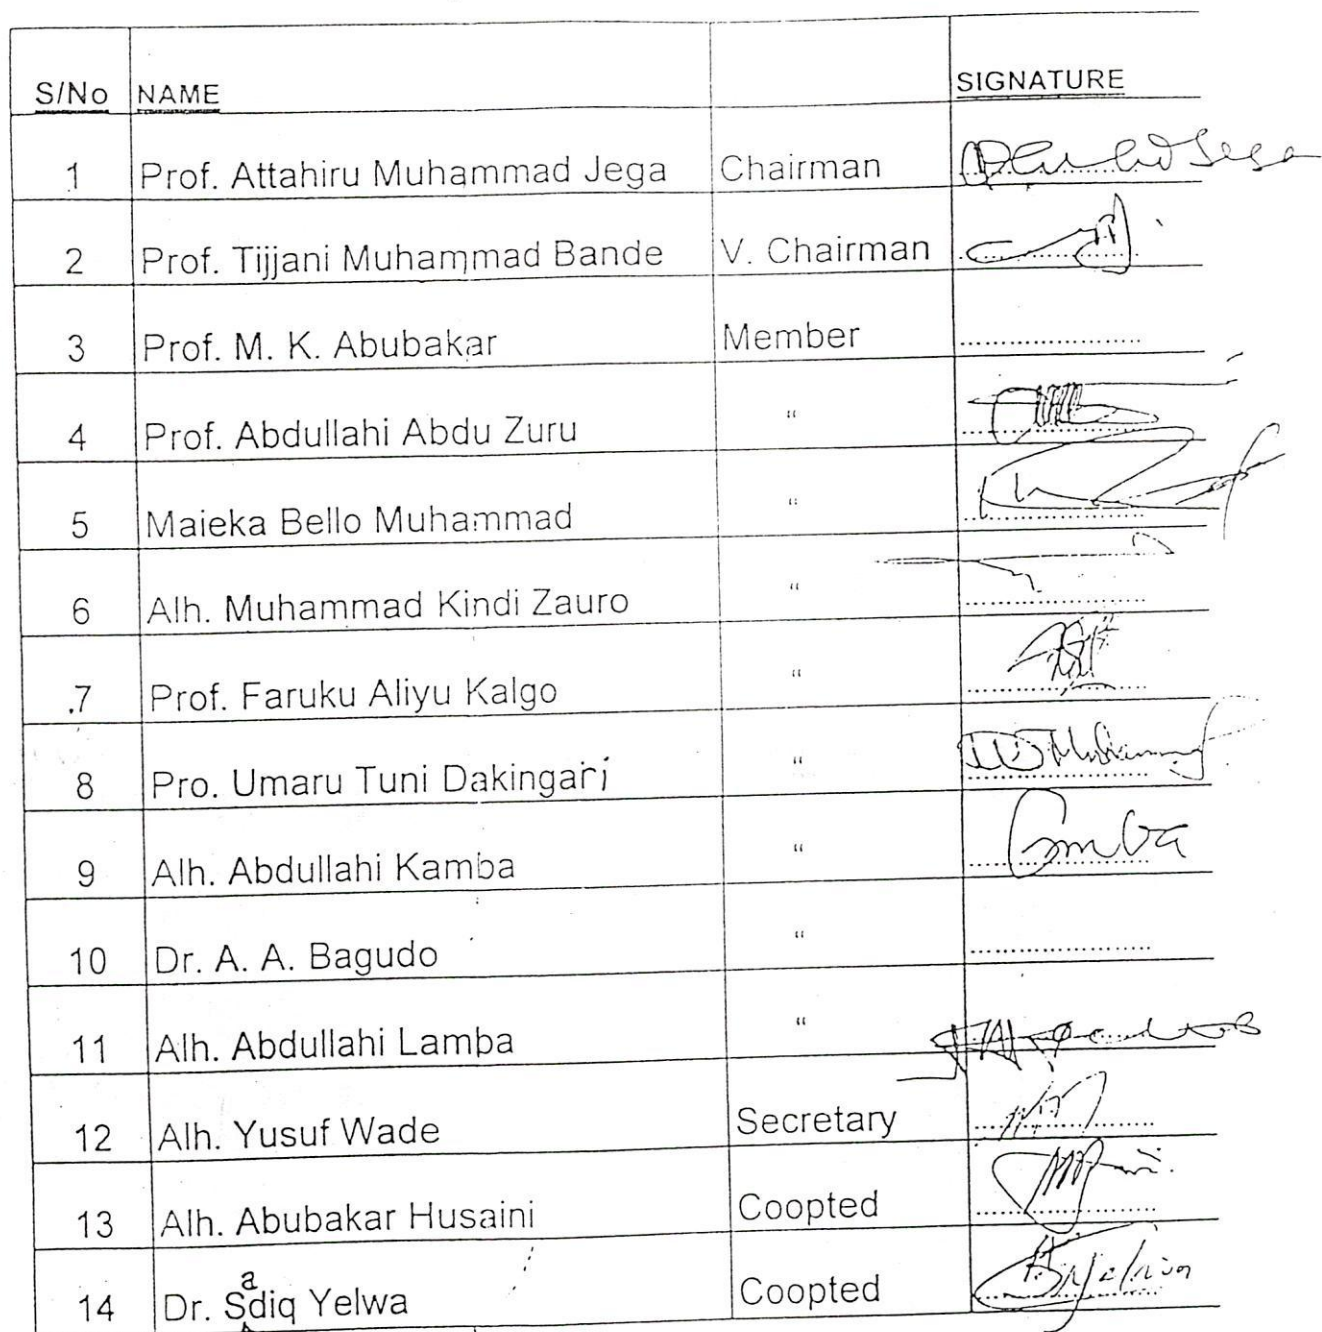 S/No NAME SIGNATURE
1 Prof. Attahiru Muhammad Jega Chairman
2 Prof. Tijjani Muhammad Bande V. Chairman
3 Prof. M. K. Abubakar Member .....................
4 Prof. Abdullahi Abdu Zuru "
5 Maieka Bello Muhammad "
6 Alh. Muhammad Kindi Zauro "
.7 Prof. Faruku Aliyu Kalgo "
8 Pro. Umaru Tuni Dakingari "
9 Alh. Abdullahi Kamba "
10 Dr. A. A. Bagudo " .....................
11 Alh. Abdullahi Lamba "
12 Alh. Yusuf Wade Secretary
13 Alh. Abubakar Husaini Coopted
14 Dr. Sadiq Yelwa Coopted